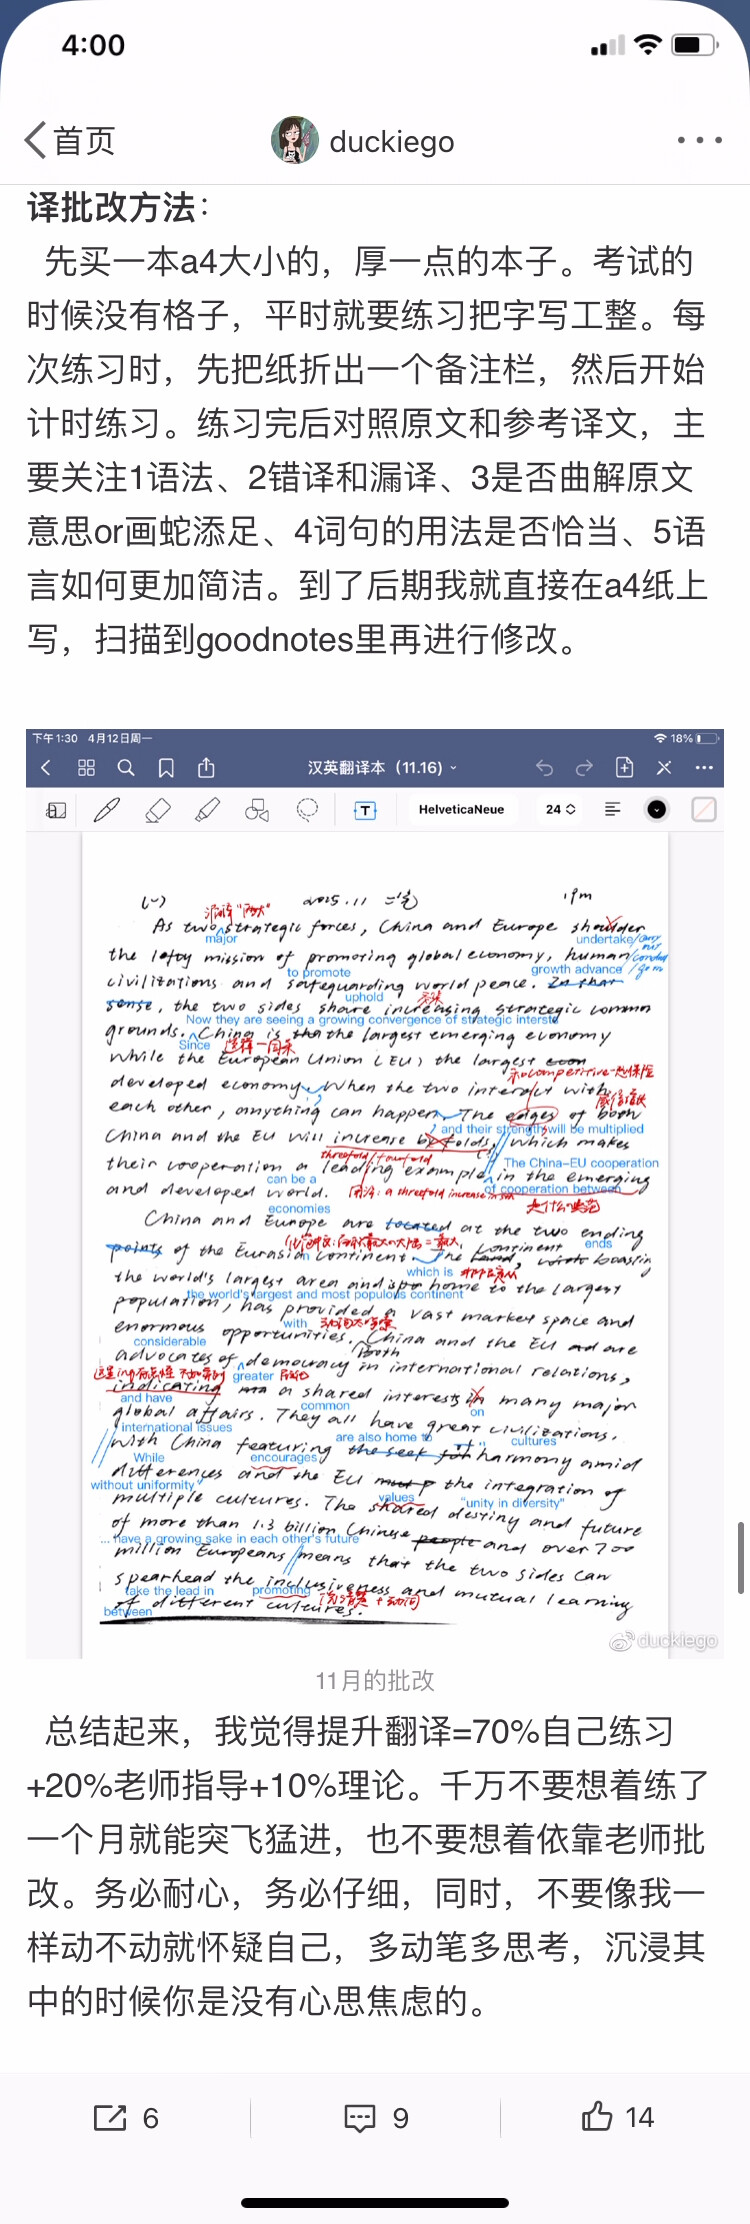 4:00
首页
duckiego
译批改方法：
先买一本a4大小的，厚一点的本子。考试的
时候没有格子，平时就要练习把字写工整。每
次练习时，先把纸折出一个备注栏，然后开始
计时练习。练习完后对照原文和参考译文，主
要关注1语法、2错译和漏译、3是否曲解原文
意思or画蛇添足、4词句的用法是否恰当、5语
言如何更加简洁。到了后期我就直接在a4纸上
写，扫描到goodnotes里再进行修改。
下午1:30 4月12日周一
18%
汉英翻译本（11.16）
HelveticaNeue
24
2015.11 二笔
漏译"两大"
As two strategic forces, China and Europe shoulder
major
undertake/carry out
the lofty mission of promoting global economy, human
to promote
growth advance
civilizations and safeguarding world peace. In that
uphold
sense, the two sides share increasing strategic common
Now they are seeing a growing convergence of strategic interste
grounds. China is the largest emerging economy
Since
while the European Union (EU) the largest
developed economy. When the two interact with
each other, anything can happen. The edges of both
and their strength will be multiplied
China and the EU will increase by folds, which makes
threefold/fourfold
The China-EU cooperation
their cooperation a leading example in the emerging
can be a
of cooperation between
and developed world.
economies
China and Europe are located at the two ending
ends
points of the Eurasian continent. The land, boasting
which is
the world's largest area and home to the largest
the world's largest and most populous continent
population, has provided a vast market space and
with
enormous opportunities. China and the EU are
considerable
Both
advocates of democracy in international relations,
greater
indicating a shared interests in many major
and have
common
on
global affairs. They all have great civilizations.
international issues
are also home to
cultures
With China featuring the seek for harmony amid
While
encourages
differences and the EU the integration of
without uniformity
values
"unity in diversity"
multiple cultures. The shared destiny and future
of more than 1.3 billion Chinese people and over 700
... have a growing sake in each other's future
million Europeans means that the two sides can
spearhead the inclusiveness and mutual learning
take the lead in
promoting
of different cultures.
between
duckiego
11月的批改
总结起来，我觉得提升翻译=70%自己练习
+20%老师指导+10%理论。千万不要想着练了
一个月就能突飞猛进，也不要想着依靠老师批
改。务必耐心，务必仔细，同时，不要像我一
样动不动就怀疑自己，多动笔多思考，沉浸其
中的时候你是没有心思焦虑的。
6
9
14